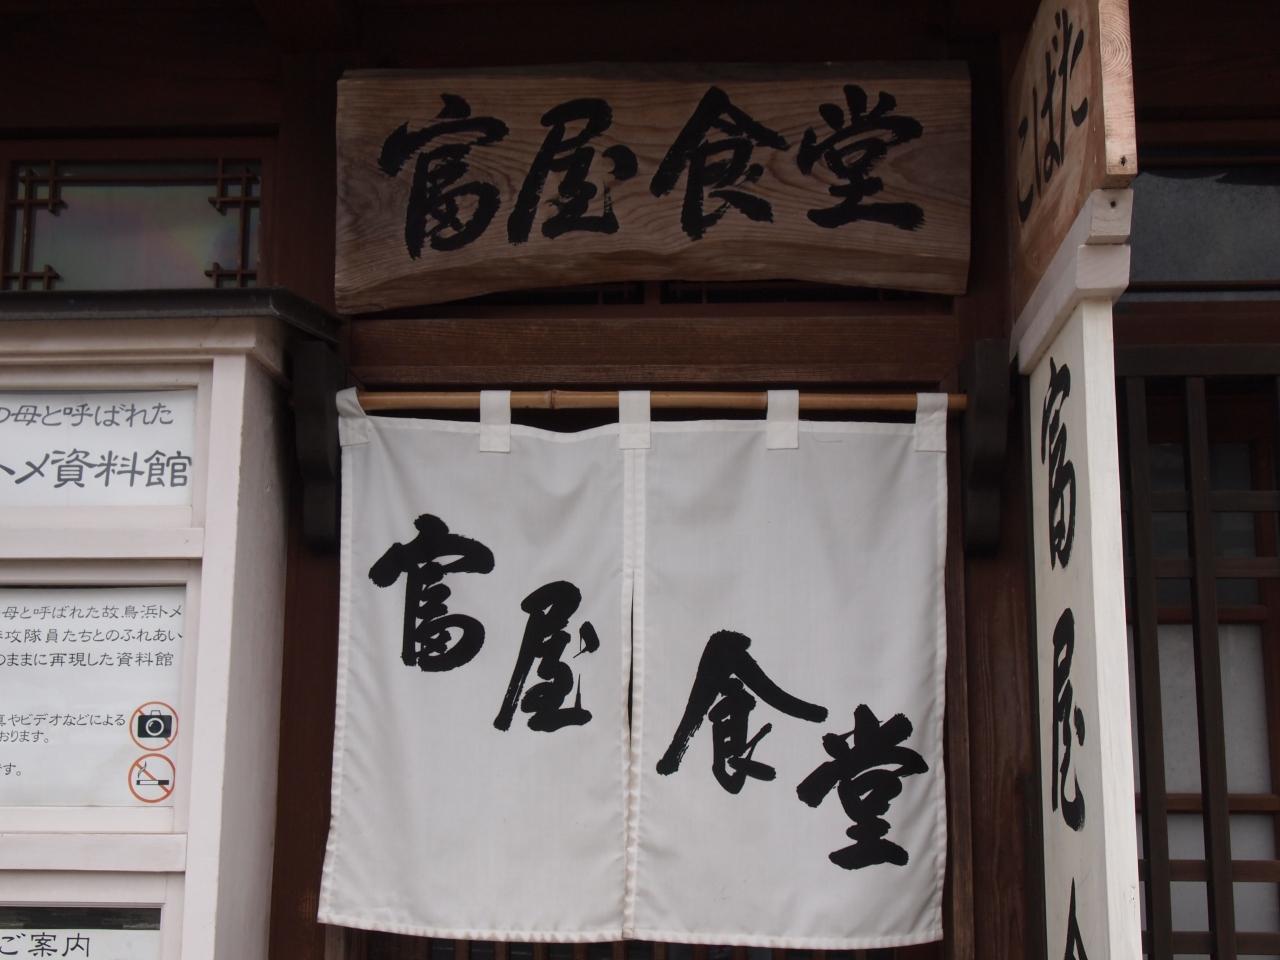 富屋食堂
たばこ
の母と呼ばれた
トメ資料館
富屋食堂
富屋食
母と呼ばれた故.鳥浜トメ
攻隊員たちとのふれあい
のままに再現した資料館
真やビデオなどによる
おります。
です。
ご案内